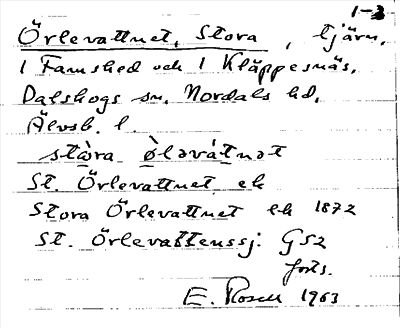 1-3
Örlevattnet, Stora, tjärn,
1 Famshed och 1 Kläppesnäs,
Dalskogs sn. Nordals hd,
Älvsb. l.
stɷ̀ra ø̀ləvátnət
St. Örlevattnet ek
Stora Örlevattnet ek 1872
St. Örlevattenssj: GS2
forts.
E. Rosell 1963